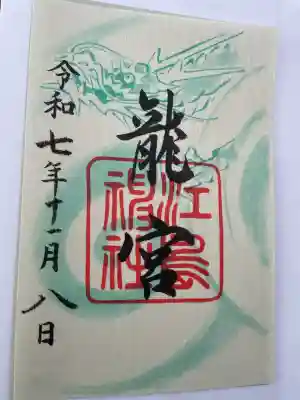 龍宮
江島神社
令和七年十一月八日